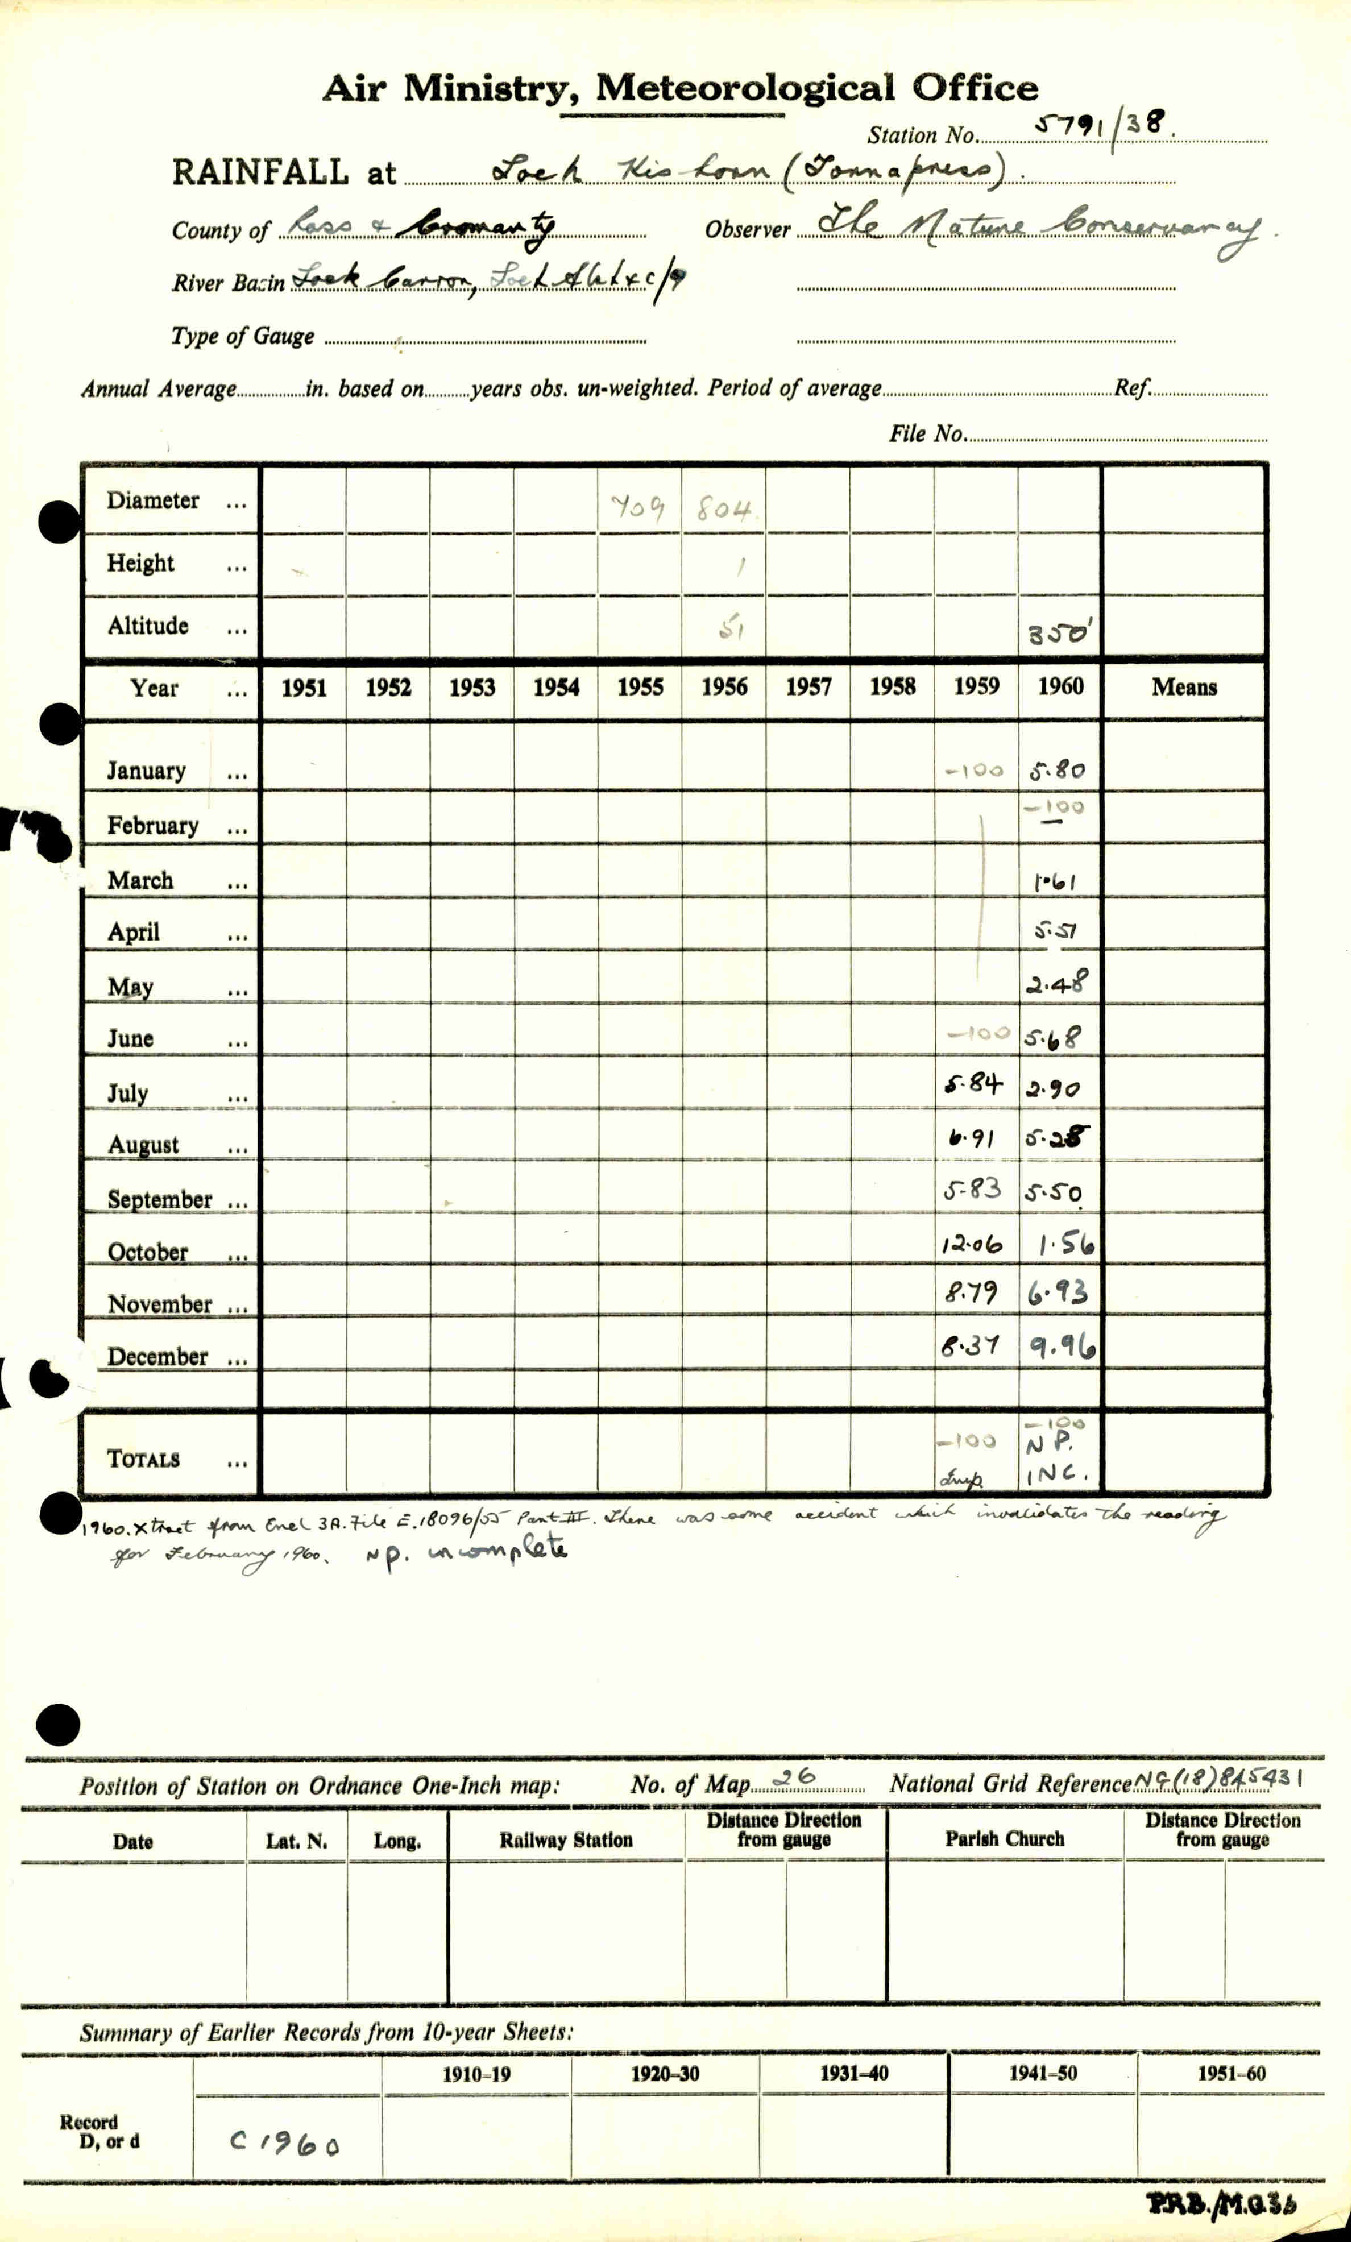 Air Ministry, Meteorological Office
Station No. 5791/38.
RAINFALL at Loch Kishorn (Tornapress).
County of Ross & Cromarty Observer The Nature Conservancy.
River Basin Loch Carron, Loch &c/9
Type of Gauge
Annual Average in. based on years obs. un-weighted. Period of average Ref.
File No.
Diameter ... 709 804
Height ... 1
Altitude ... 51 350'
Year ... 1951 1952 1953 1954 1955 1956 1957 1958 1959 1960 Means
January ... -100 5.80
February ... -100 —
March ... 1.61
April ... 5.51
May ... 2.48
June ... -100 5.68
July ... 5.84 2.90
August ... 6.91 5.28
September ... 5.83 5.50
October ... 12.06 1.56
November ... 8.79 6.93
December ... 8.37 9.96
TOTALS ... -100 -100
N P.
INC.
1960. Xtract from Encl 3A. File E.18096/55 Part III. There was some accident which invalidates the reading
for February 1960. NP. incomplete
Position of Station on Ordnance One-Inch map: No. of Map 26 National Grid Reference NG(18)845431
Date Lat. N. Long. Railway Station Distance Direction from gauge Parish Church Distance Direction from gauge
Summary of Earlier Records from 10-year Sheets:
1910-19 1920-30 1931-40 1941-50 1951-60
Record
D, or d C 1960
P.R.B./M.O.36